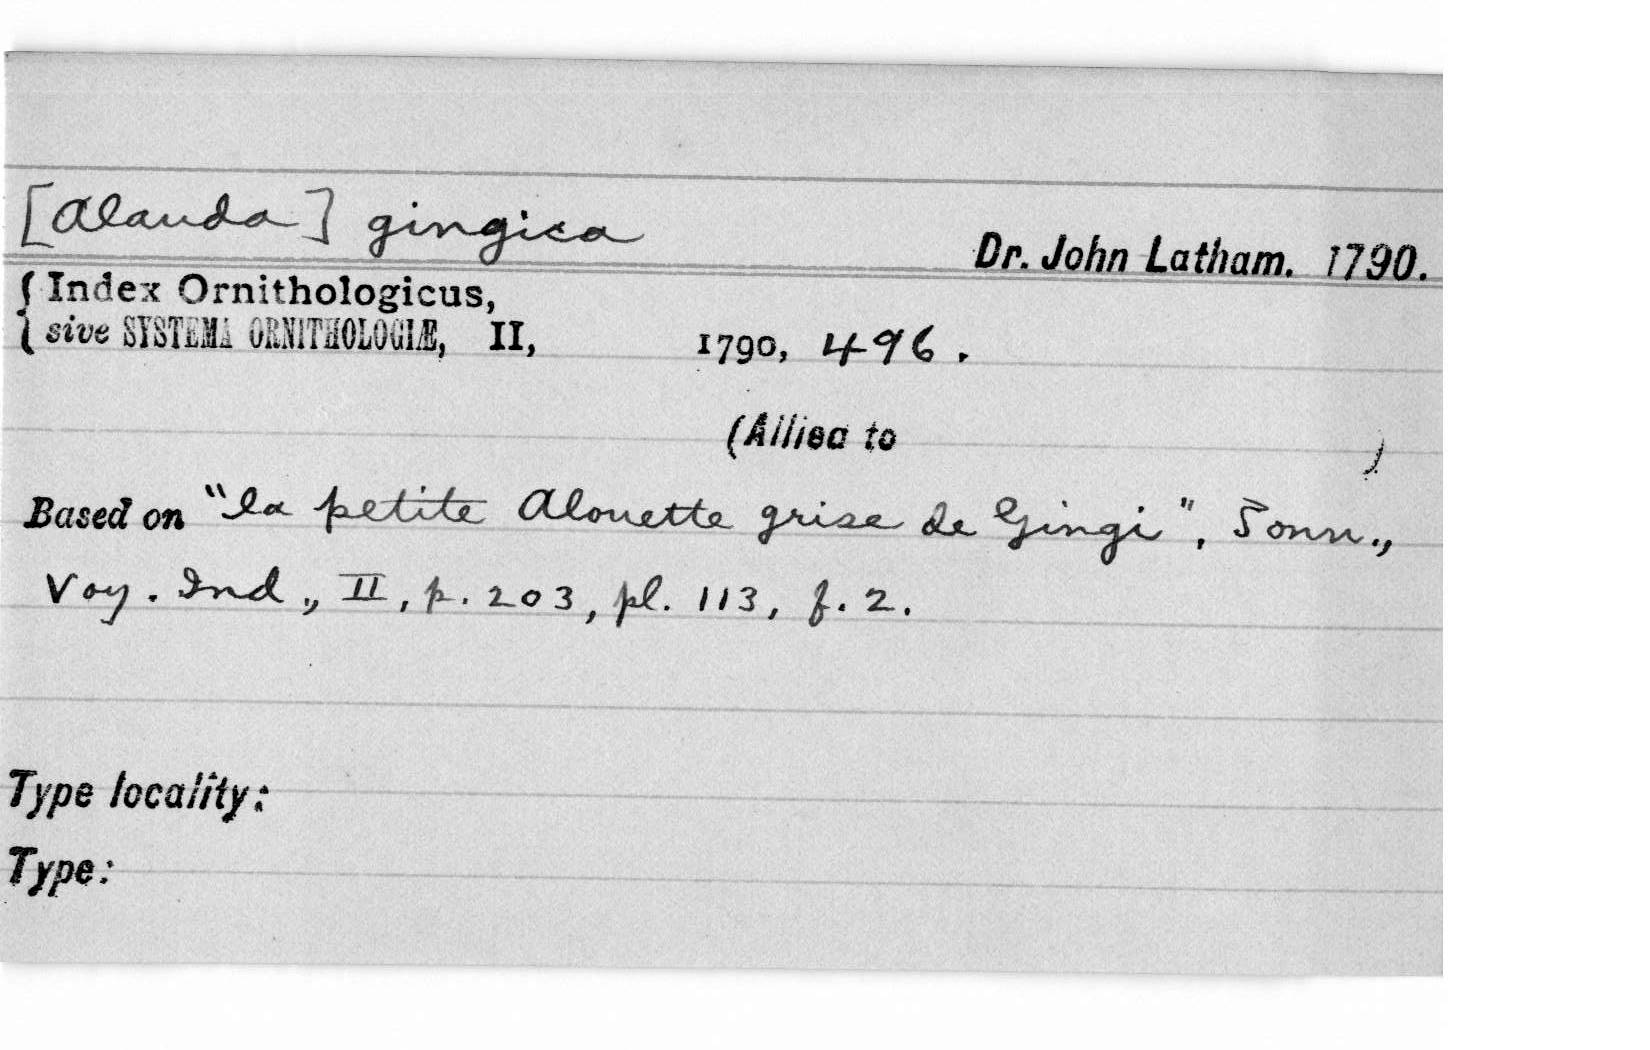 [Alauda] gingica
Dr. John Latham. 1790.
{ Index Ornithologicus,
{ sive SYSTEMA ORNITHOLOGIÆ, II, 1790, 496.
(Allied to )
Based on "la petite Alouette grise de Gingi", Sonn.,
Voy. Ind., II, p. 203, pl. 113, f. 2.
Type locality:
Type: